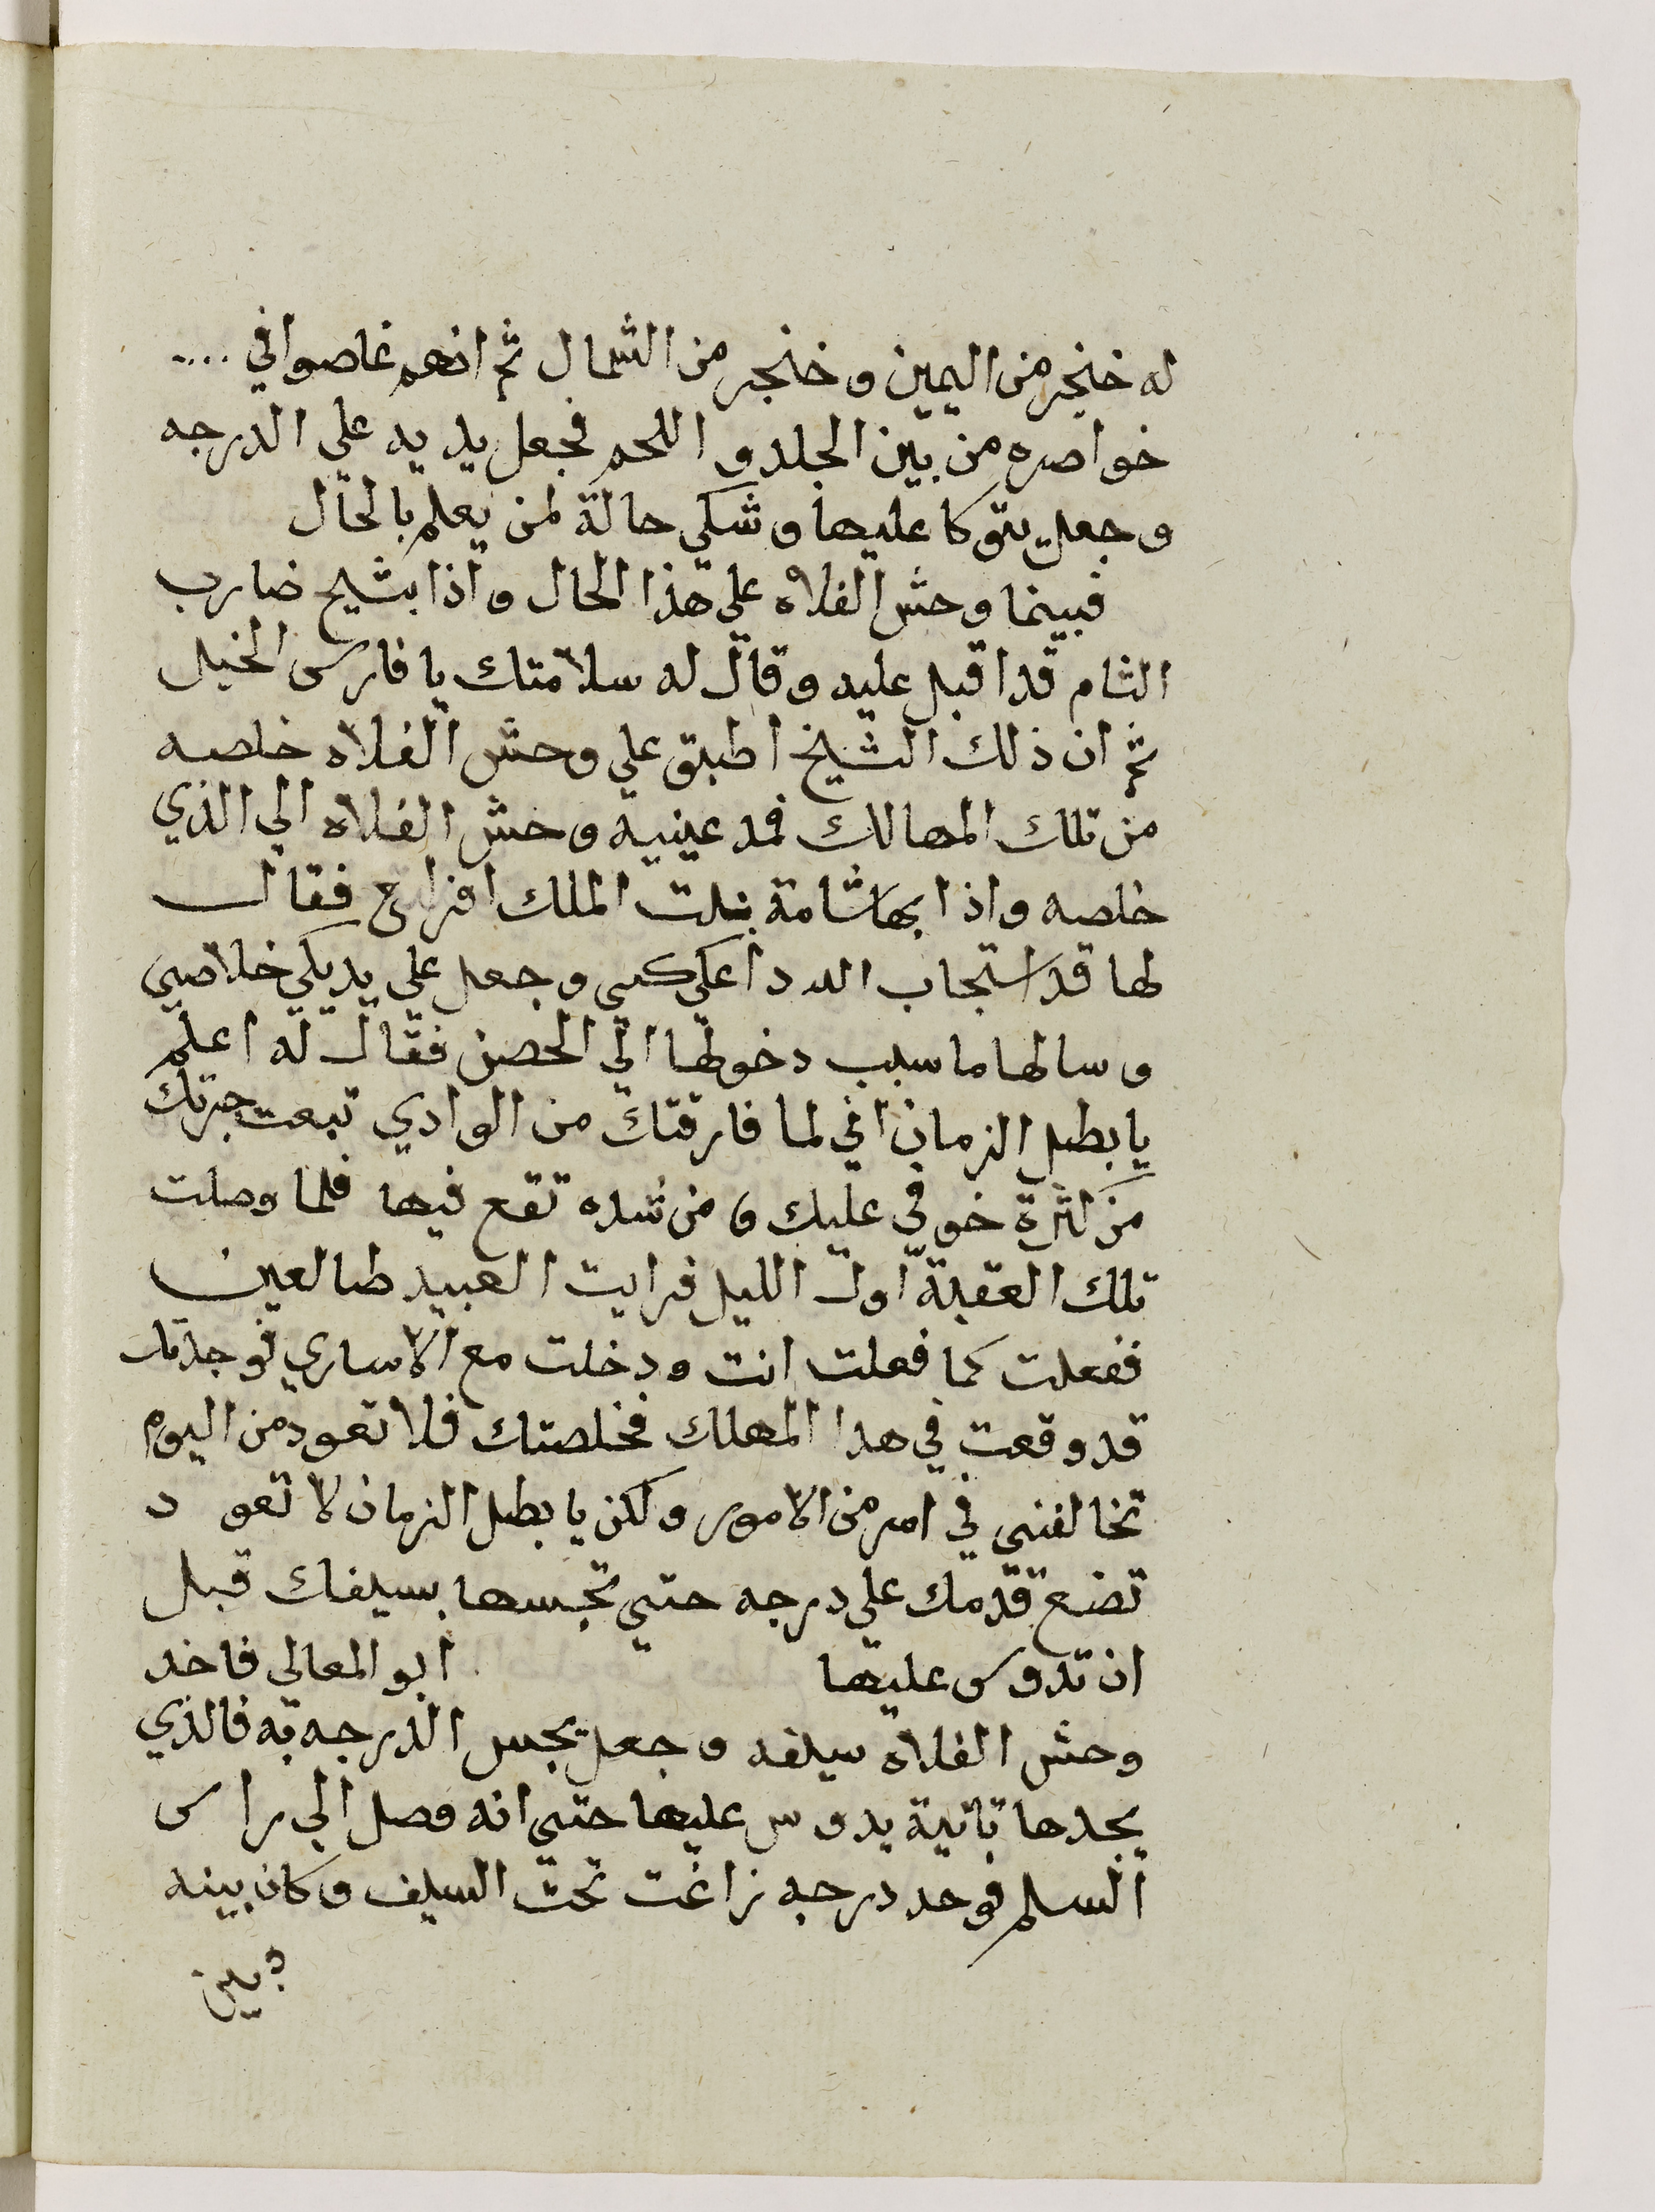 له خنجر من اليمين وخنجر من الشمال ثم انهم غاصوا في ....
خواصره من بين الجلد و اللحم فجعل يديه علي الدرجه
وجعل يتوكا عليها وشكي حالة لمن يعلم بالحال
فبينما وحش الفلاه علي هذا الحال واذا بشيح ضارب
الثام قد اقبل عليه وقال له سلامتك يا فارس الخيل
ثم ان ذلك الشيخ اطبق علي وحش الفلاه خلصه
من تلك المهالك فمد عينيه وحش الفلاه الي الذي
خلصه واذا بها شامة بنت الملك افراح فقال
لها قد استجاب الله دعاكي وجعل علي يديكي خلاصي
وسالها ما سبب دخولها الي الحصن فقال له اعلم
يا بطل الزمان اني لما فارقتك من الوادي تبعت جرتك
من كثرة خوفي عليك ومن شده تقع فيها فلما وصلت
تلك العقبة اول الليل فرايت العبيد طالعين
ففعلت كما فعلت انت ودخلت مع الاساري فوجدتك
قد وقعت في هدا المهلك فخلصتك فلا تعود من اليوم
تخالفني في امر من الامور ولكن يا بطل الزمان لا تعود
تضع قدمك علي درجه حتي تجسها بسيفك قبل
ان تدوس عليها ابو المعالي فاخد
وحش الفلاه سيفه وجعل يجس الدرجه به فالذي
يجدها تابتة يدوس عليها حتي انه وصل الي راس
السلم فوجد درجه زاغت تحت السيف وكان بينه
وبين